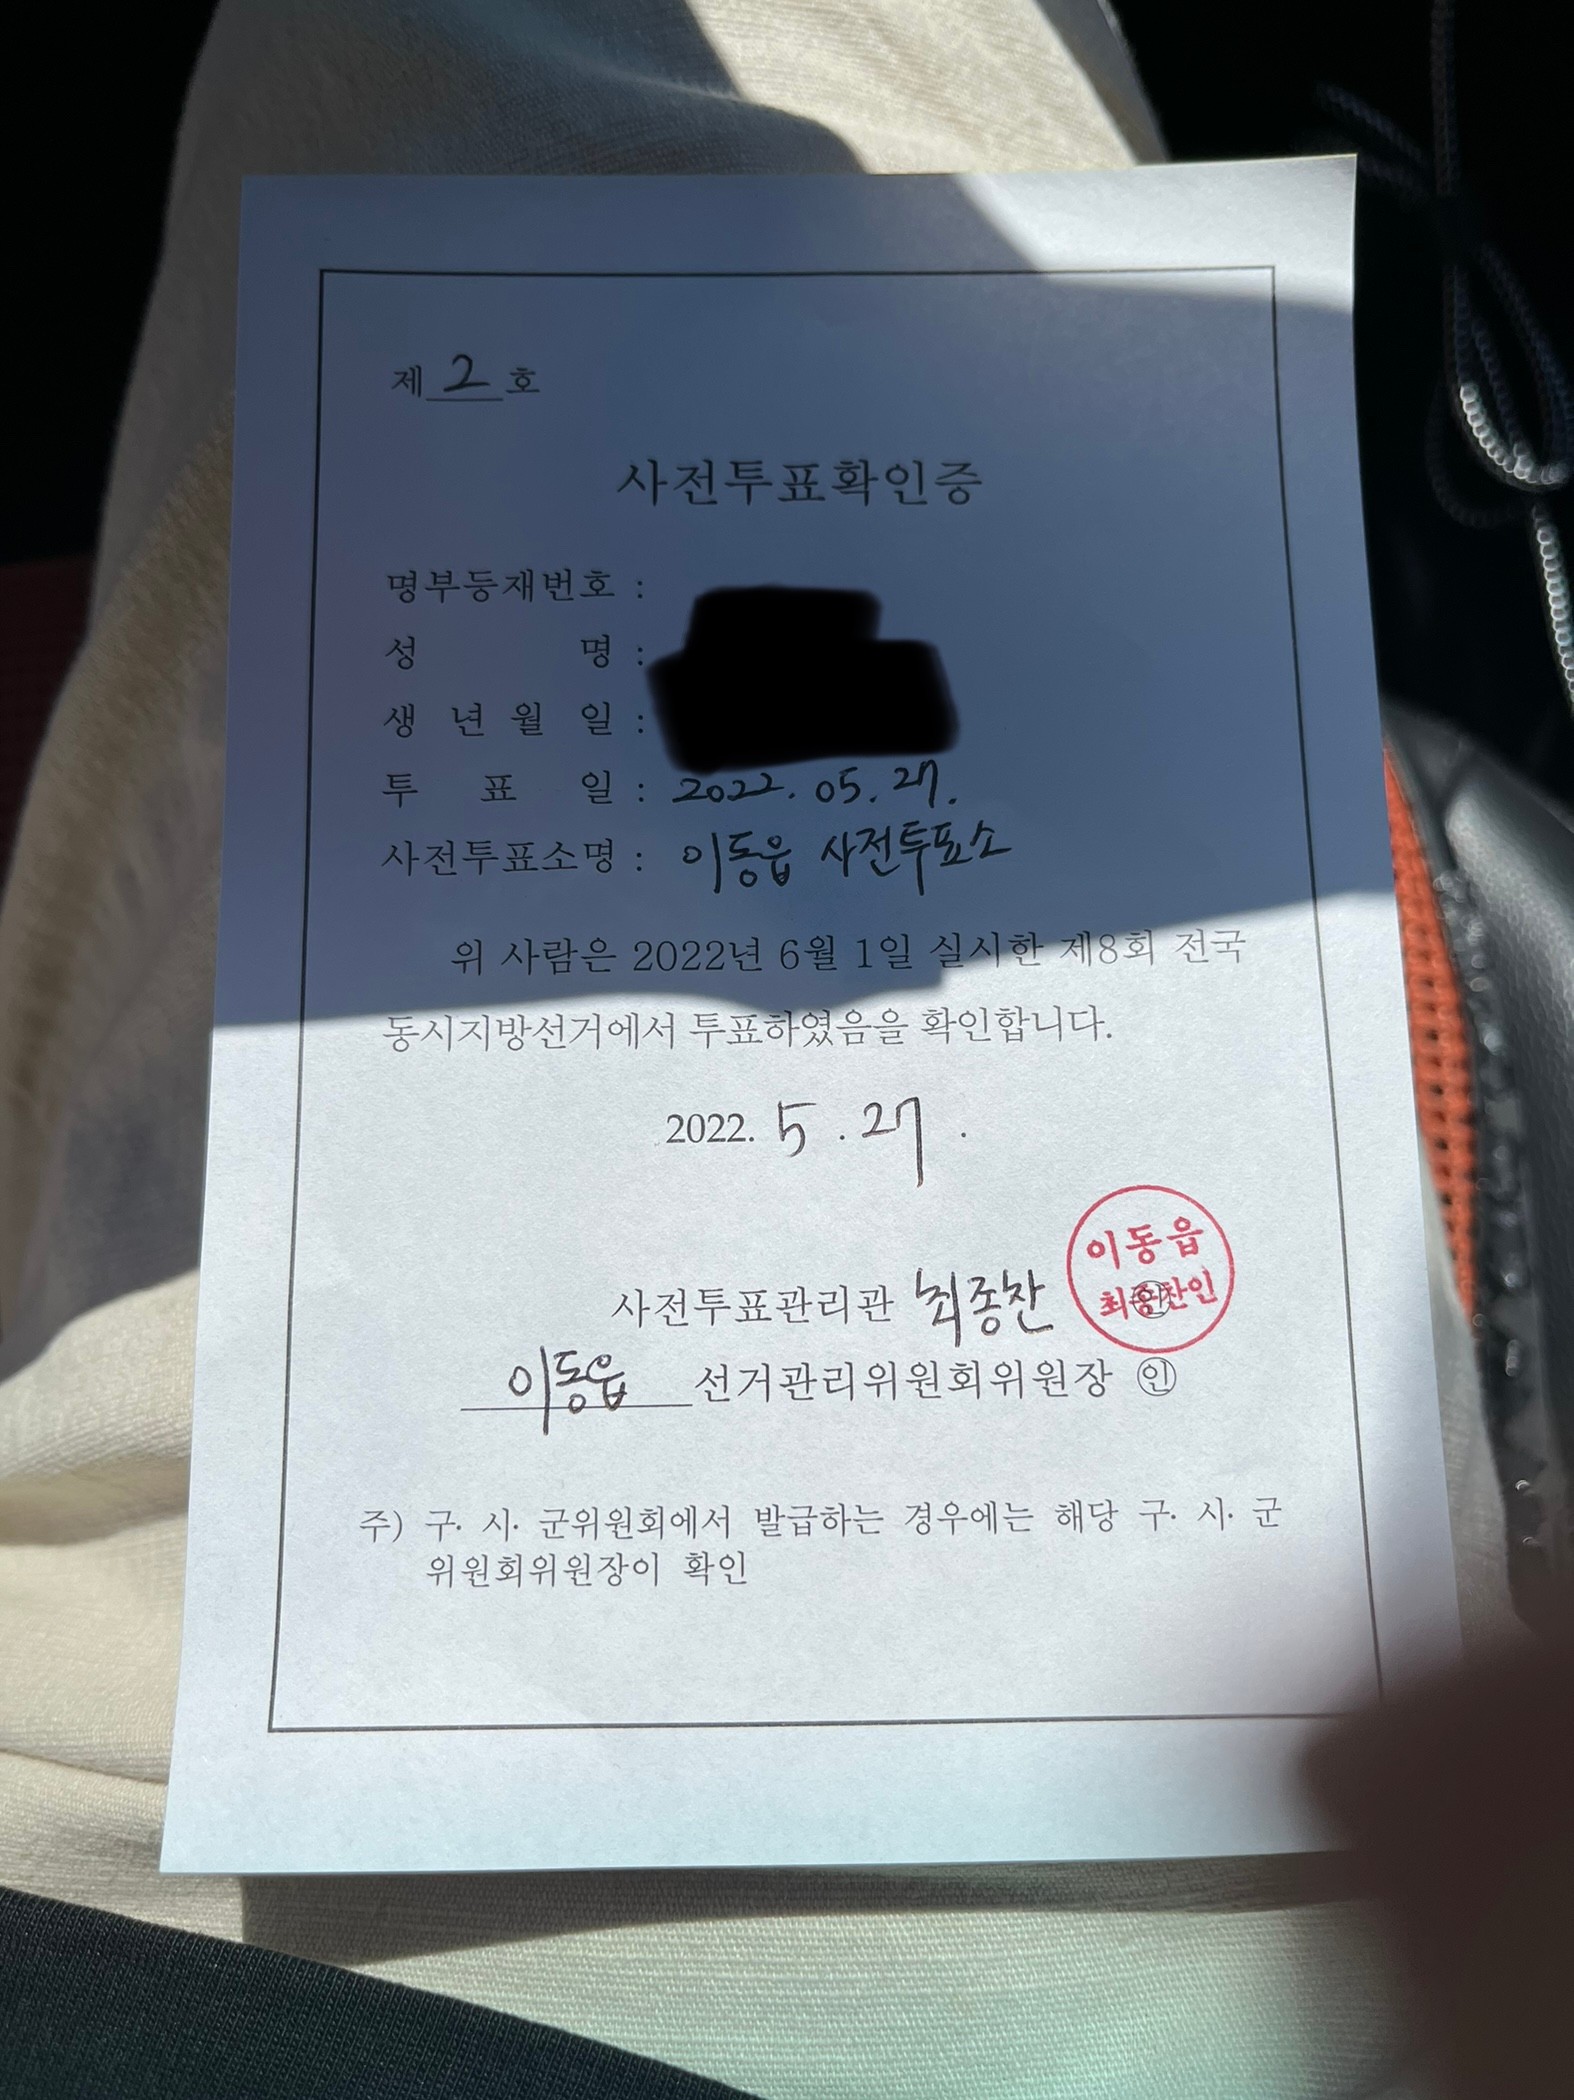 제 2 호
사전투표확인증
명부등재번호 :
성 명 :
생 년 월 일 :
투 표 일 : 2022. 05. 27.
사전투표소명 : 이동읍 사전투표소
위 사람은 2022년 6월 1일 실시한 제8회 전국
동시지방선거에서 투표하였음을 확인합니다.
2022. 5 . 27 .
이동읍
사전투표관리관 최종찬 최종찬인
이동읍 선거관리위원회위원장 ㊞
주) 구· 시· 군위원회에서 발급하는 경우에는 해당 구· 시· 군
위원회위원장이 확인